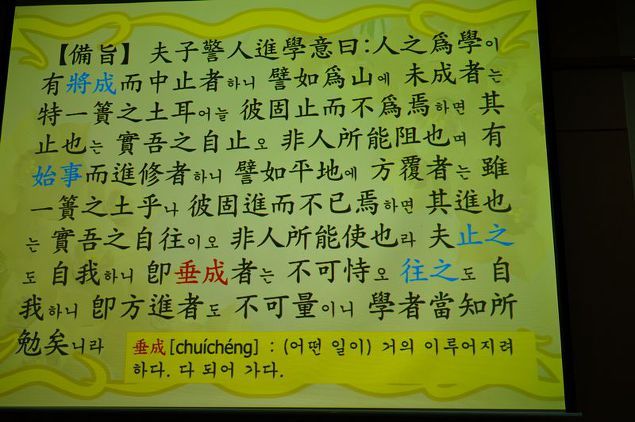 【備旨】 夫子警人進學意曰:人之爲學이
有將成而中止者하니 譬如爲山에 未成者는
特一簣之土耳어늘 彼固止而不爲焉하면 其
止也는 實吾之自止오 非人所能阻也며 有
始事而進修者하니 譬如平地에 方覆者는 雖
一簣之土乎나 彼固進而不已焉하면 其進也
는 實吾之自往이오 非人所能使也라 夫止之
도 自我하니 卽垂成者는 不可恃오 往之도 自
我하니 卽方進者도 不可量이니 學者當知所
勉矣니라
垂成[chuíchéng] : (어떤 일이) 거의 이루어지려
하다. 다 되어 가다.